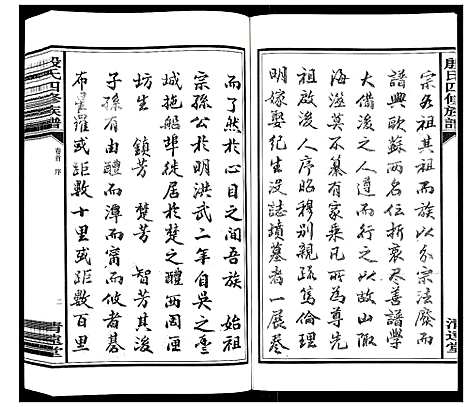 殷氏四修族譜
宗爲祖其祖而族以分宗法廢而
譜興歐蘇兩名位折衷盡善譜學
大備後之人遵而行之以故山陬
海澨莫不纂有家乘凡所爲尊先
祖啟後人序昭穆別親疏篤倫理
明嫁娶紀生沒誌墳墓者一展卷
清遠堂
而了然於心目之間吾族 始祖
宗孫公於明洪武二年自吳之
城拖船埠徒居於楚之醴西周
坊生 鎮芳 楚芳 智芳其後
子孫有由醴而潭而甯而攸者碁
布星羅或距數十里或距數百里
殷氏四修族譜
卷首 序
二
清遠堂